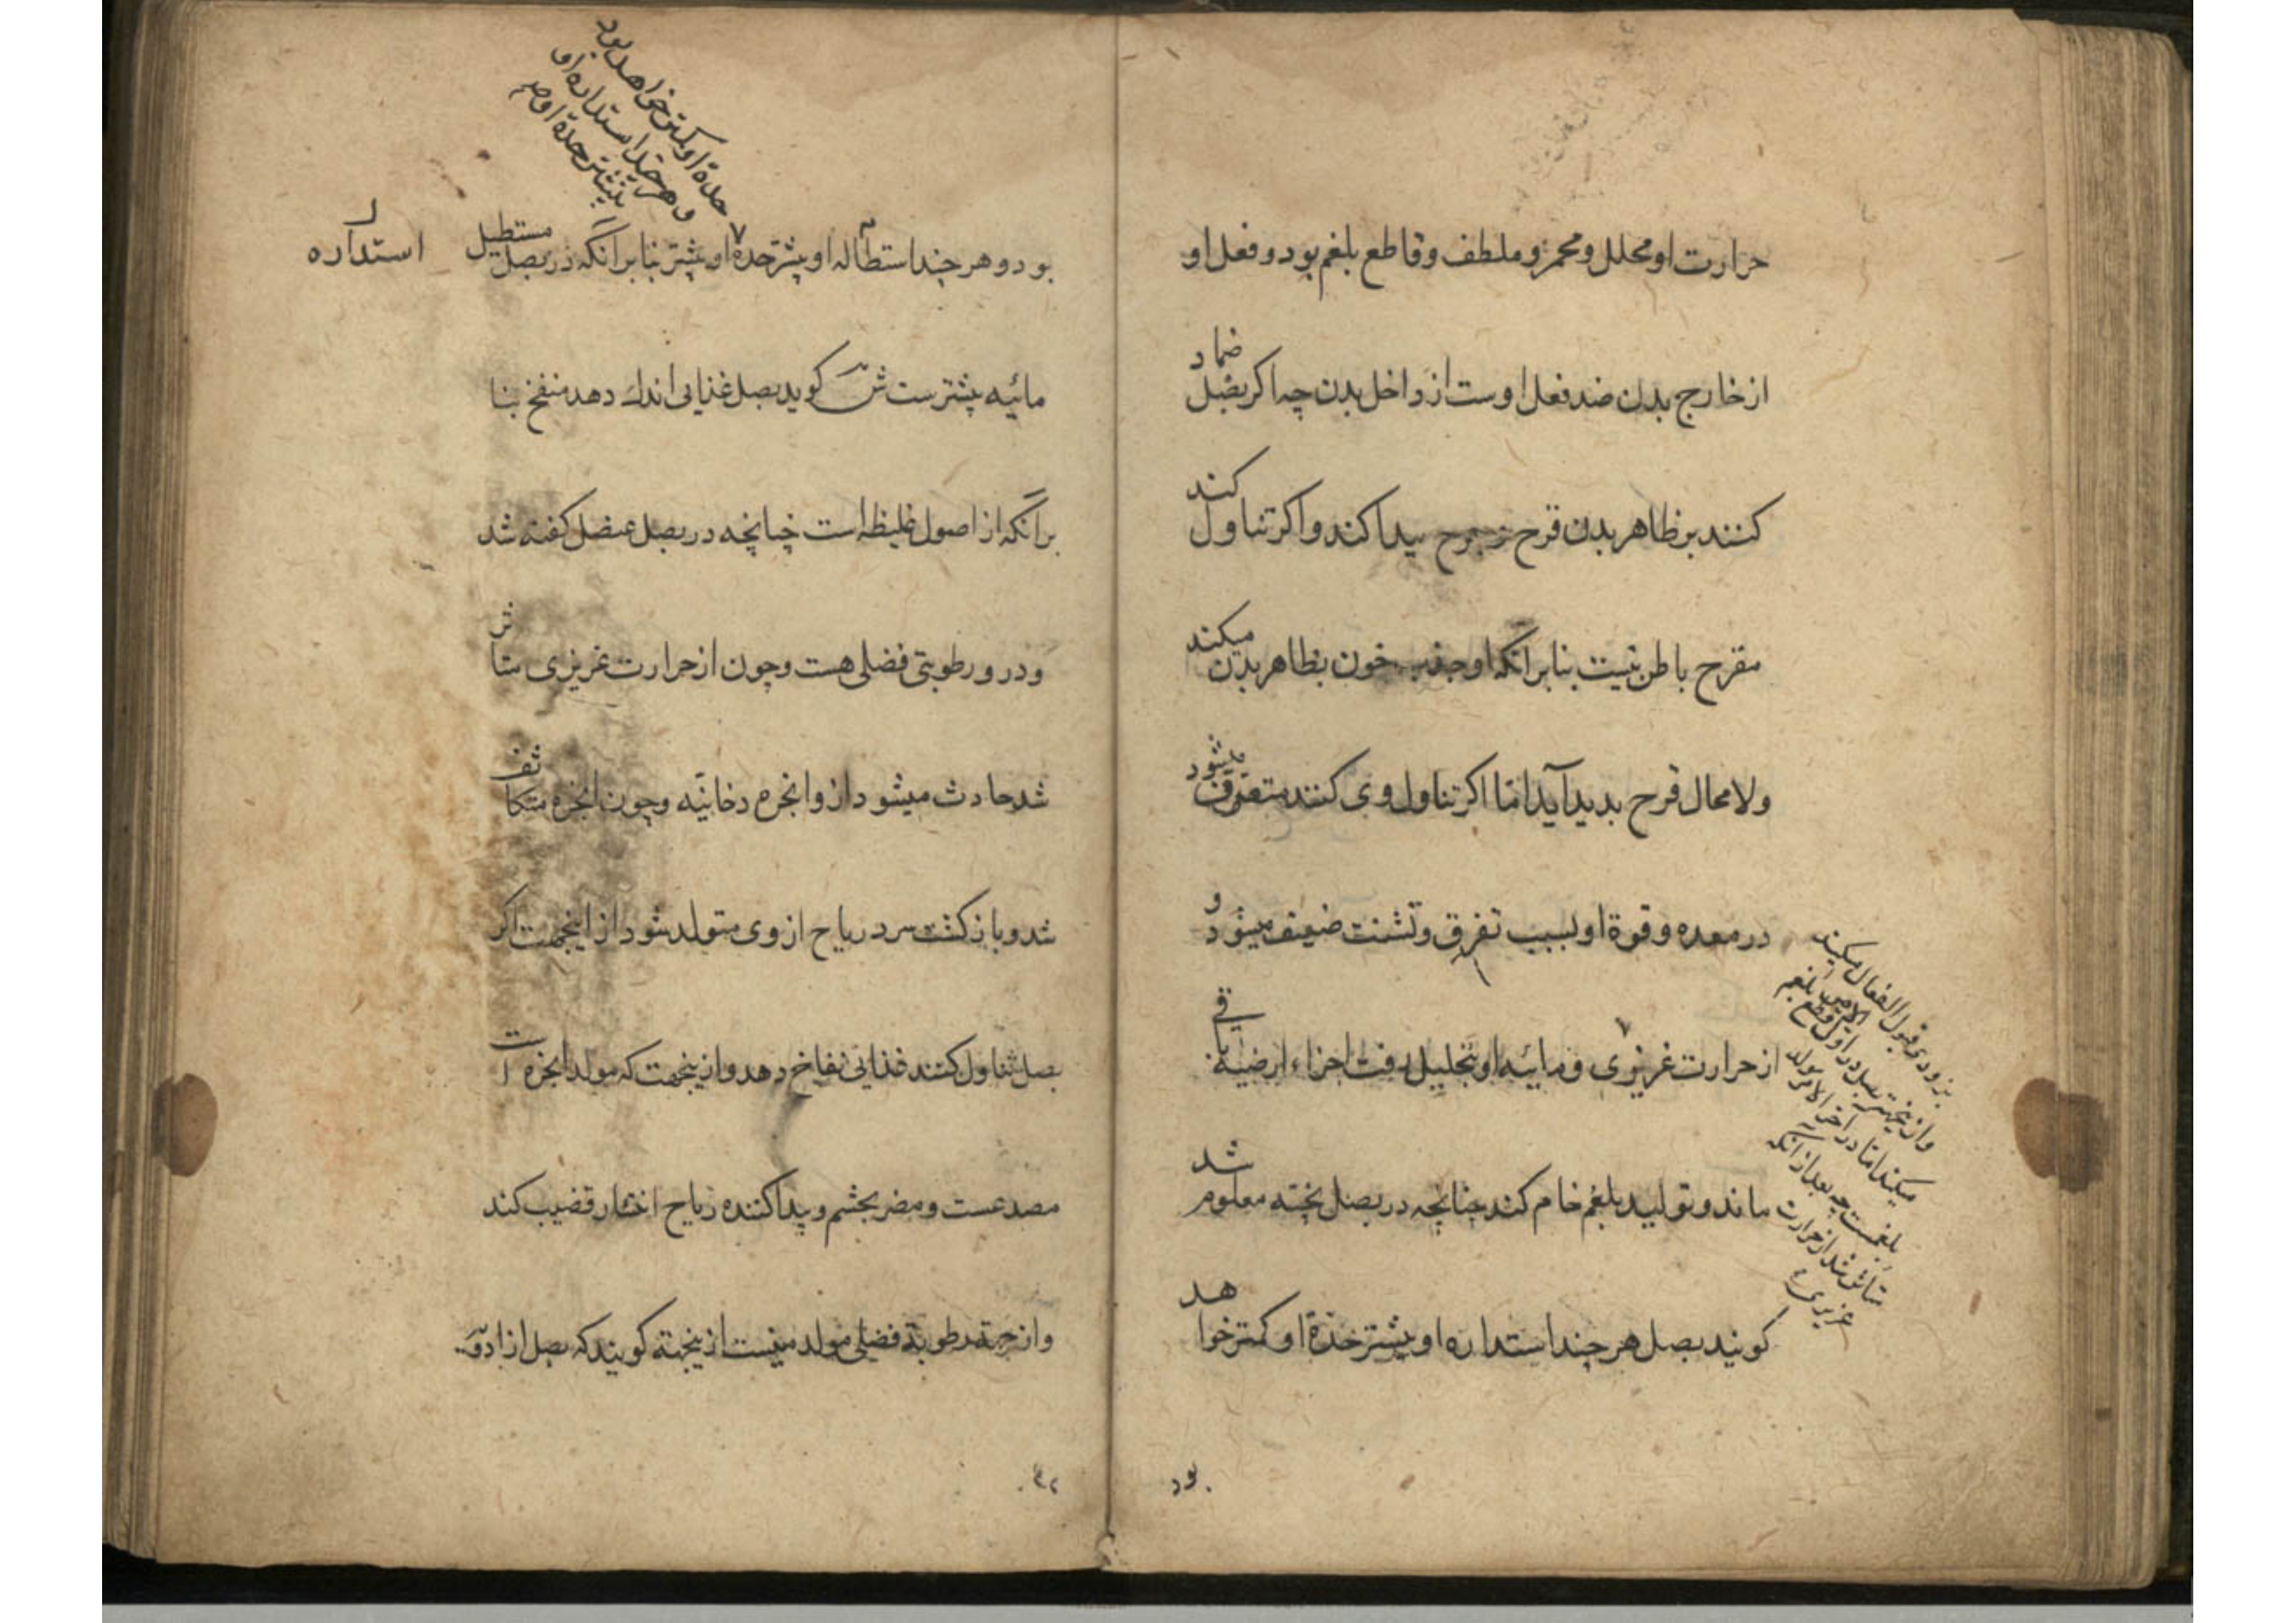 حرارت او محلل و محمر و ملطف و قاطع بلغم بود و فعل او
از خارج بدن ضد فعل اوست از داخل بدن چه اکر بصل ضماد
کنند بر ظاهر بدن قرح پیدا کند و اکر تناول کند
مقرح باطن نیست بنابر آنکه او جذب خون بظاهر بدن میکند
ولا محال قرح بدید آید اما اکر تناول وی کنند متفرق میشود
در معده و قوة او بسبب تفرق و تشتت ضعیف میشود و
از حرارت غریزی و مائیه او بتحلیل رفت اجزاء ارضیه باقی
ماند و تولید بلغم خام کند چنانچه در بصل پخته معلوم شد
کویند بصل هر چند استداره او بیشتر حدة او کمتر خواهد
بزودی قبول انفعال میکند
وازینجهة بصل در اول الامر قطع بلغم
میکند اما در آخر الامر مولد
بلغمست چه بعد از آنکه
متأثر شد از حرارت
غریزی
بود
حدة او کمتر خواهد بود
و هر چند استداره او
بیشتر حدة او
بود و هر چند استطاله او بیشتر حدة او بیشتر بنابر آنکه در بصل مستطیل
استداره
مائیه بیشترست ش کوید بصل غذایی اندک دهد منفخ بنا
بر آنکه از اصول غلیظه است چنانچه در بصل عنصل کفته شد
و درو رطوبتی فضلی هست و چون از حرارت غریزی متاثر
شد حادث میشود ازو ابخره دخانیه و چون ابخره متکاثف
شد و باز کشت سرد ریاح از وی متولد شود از اینجهت اکر
بصل تناول کنند غذائی نفاخ دهد و ازینجهت که مولد ابخره است
مصدعست و مضر بچشم و پیدا کننده ریاح انتشار قضیب کند
و از جهة رطوبة فضلی مولد منیست ازینجهة کویند که بصل از ادویه